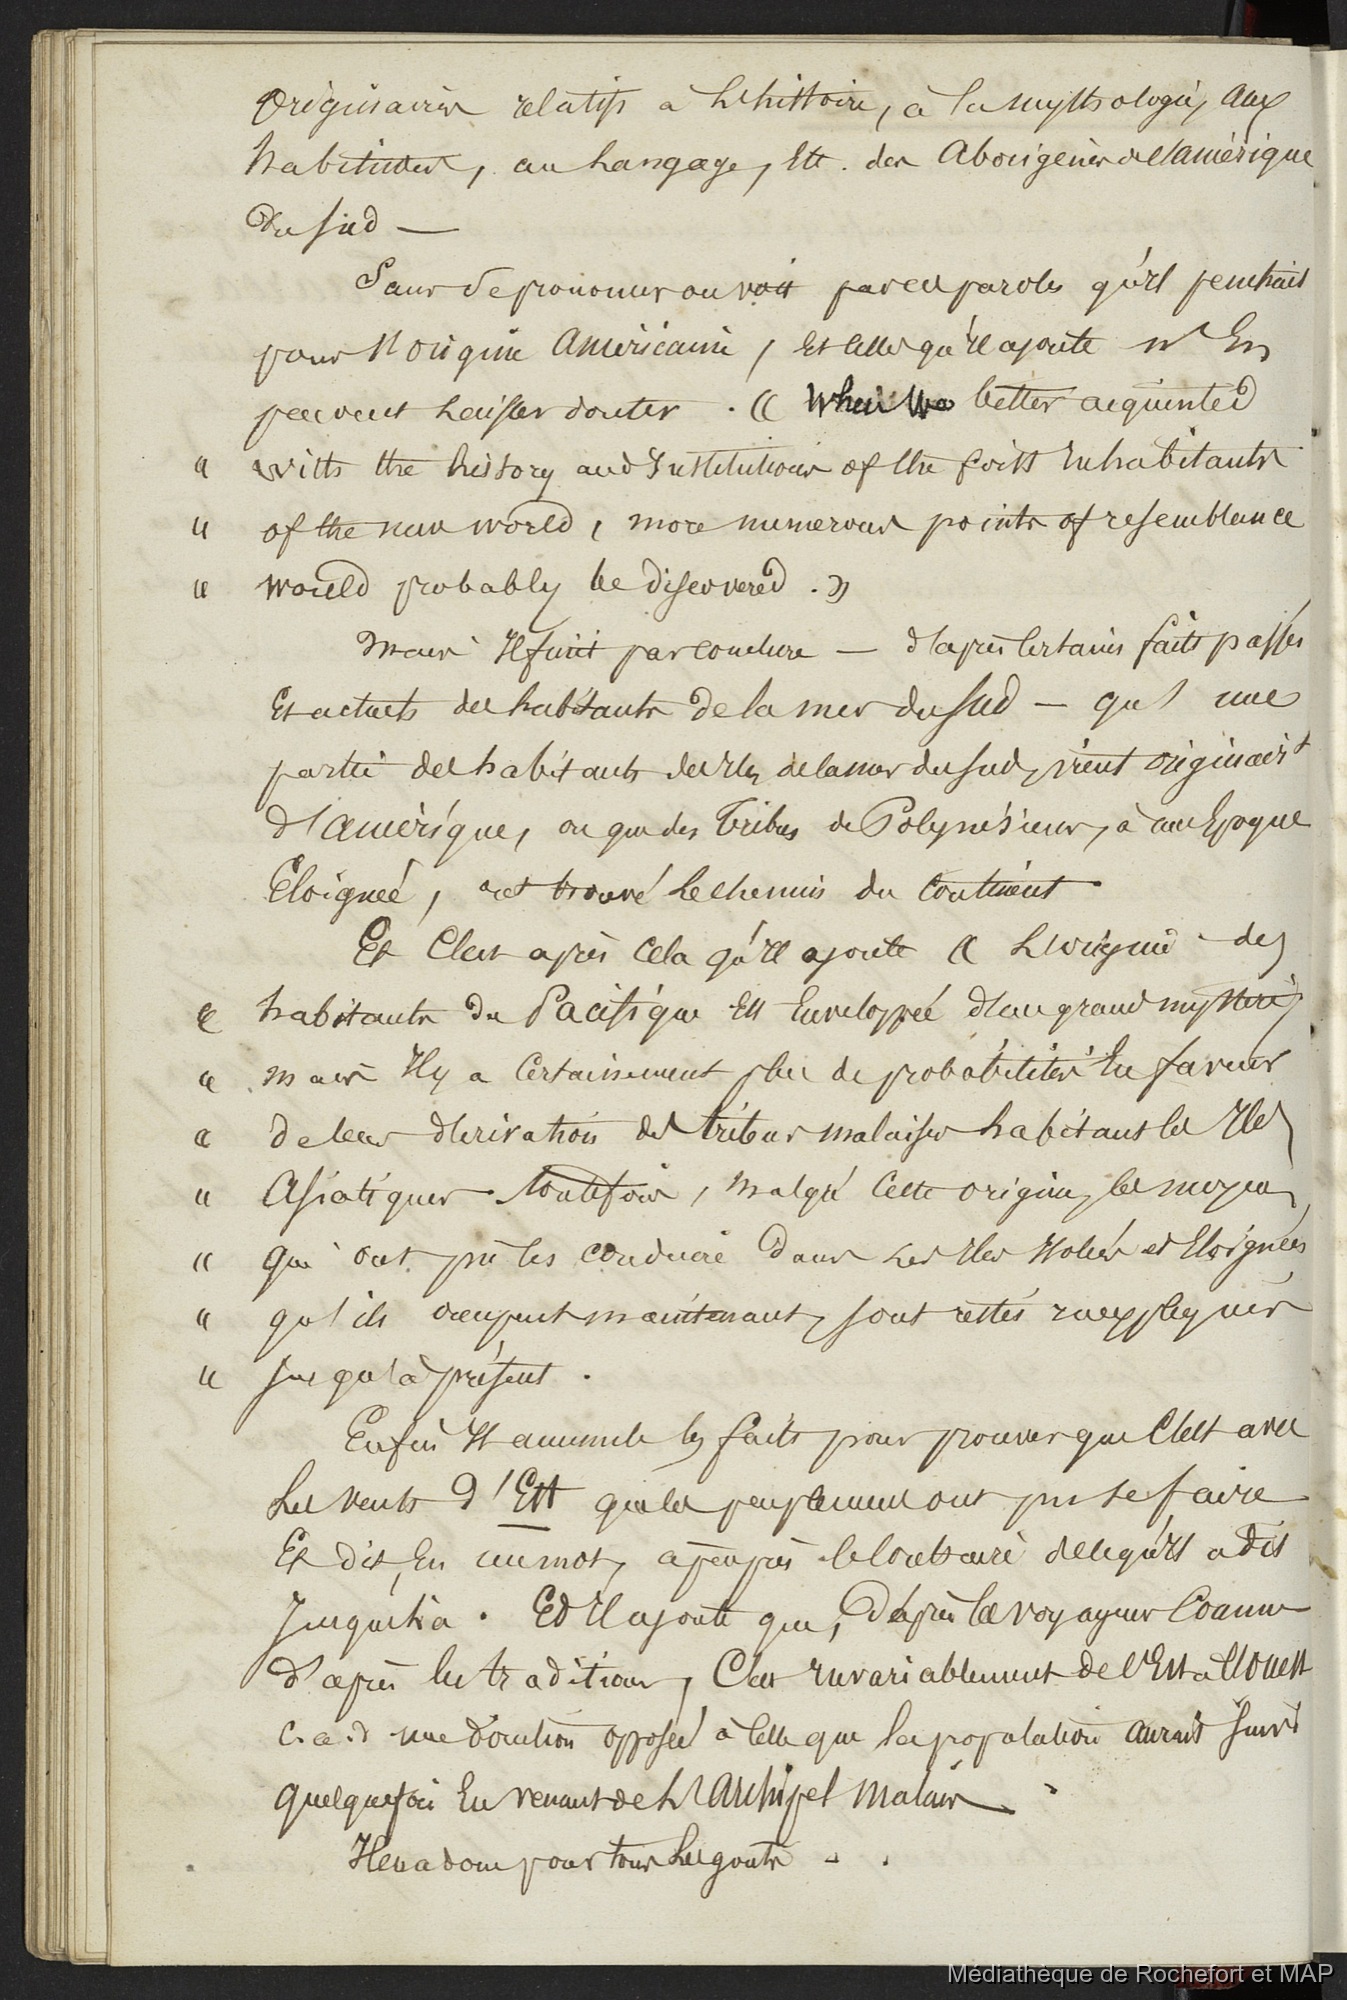 originaires relatifs à l'histoire, à la mythologie, aux
habitudes, au langage, etc. des Aborigènes de l'amérique
du Sud —
Sans se prononcer on voit par ces paroles qu'il penchait
pour l'origine américaine, et celles qu'il ajoute n'en
peuvent laisser douter. « When we better acquinted
" with the history and institutions of the first inhabitants
" of the new world, more numerous points of resemblance
" would probably be discovered. »
Mais il finit par conclure — d'après certains faits passés
et actuels des habitants de la mer du Sud — qu'une
partie des habitants des Iles de la mer du Sud, vient originairt
d'amérique, ou que des Tribus de Polynésiens, à une époque
Eloignée, ont trouvé le chemin du continent.
Et c'est après cela qu'il ajoute « L'origine des
" habitants du Pacifique est enveloppée d'un grand mystère,
" mais il y a certainement plus de probabilités en faveur
" de leur dérivation des tribus malaises habitant les Iles
" Asiatiques. Toutefois, malgré cette origine, les moyens
" qui ont pu les conduire dans les Iles isolées et éloignées
" qu'ils occupent maintenant, sont restés inexpliqués
" jusqu'à présent.
Enfin il accumule les faits pour prouver que c'est avec
les vents d'Est que les peuplements ont pu se faire
Et dit, en un mot, à peu près le contraire de ce qu'il a dit
jusqu'ici. Et il ajoute que, d'après les voyageurs comme
d'après les traditions, c'est invariablement de l'Est à l'Ouest
c. a. d une direction opposée à celle que la population aurait suivi
quelquefois en venant de l'Archipel Malais.
Il en a donc pour tous les goûts . .
Médiathèque de Rochefort et MAP